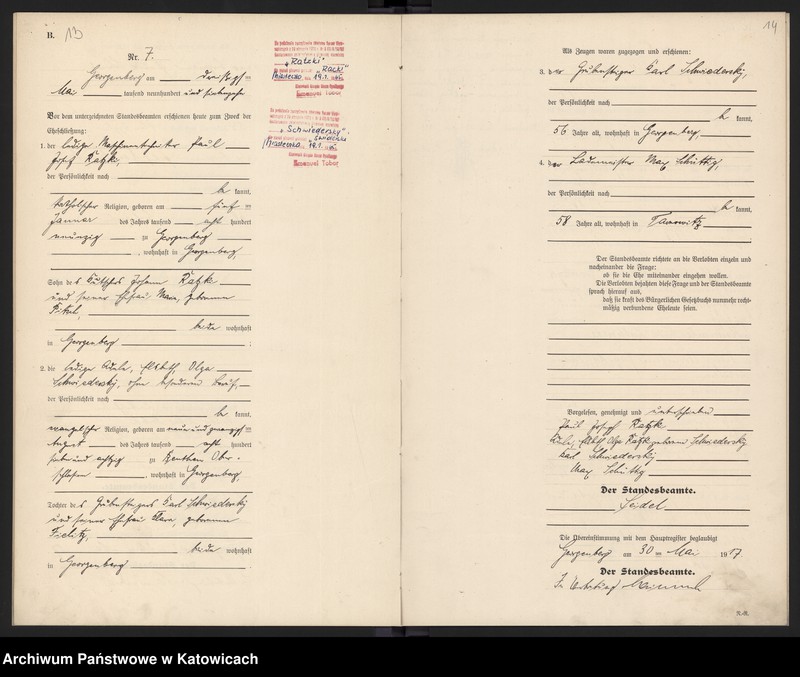 B. 13
Nr. 7.
Georgenberg am dreißigsten
Mai tausend neunhundert und siebzehn
Vor dem unterzeichneten Standesbeamten erschienen heute zum Zweck der
Eheschließung:
1. der ledige Paul
Josef Ratzke,
der Persönlichkeit nach
be kannt,
katholischer Religion, geboren am fünf ten
Januar des Jahres tausend acht hundert
neunzig zu Georgenberg
, wohnhaft in Georgenberg,
Sohn des Kutschers Johann Ratzke
und seiner Ehefrau Marie, geborenen
beide wohnhaft
in Georgenberg ;
2. die ledige Adele, Elsbeth, Olga
Schwiedersky, ohne besonderen Beruf,
der Persönlichkeit nach
be kannt,
evangelischer Religion, geboren am neunundzwanzigsten
August des Jahres tausend acht hundert
siebenundachtzig zu Beuthen Ober-
schlesien , wohnhaft in Georgenberg,
Tochter des Grubensteigers Karl Schwiedersky
und seiner Ehefrau Klara, geborenen
Fielitz,
beide wohnhaft
in Georgenberg .
„Ratzki"
„Racki"
Miasteczko 19.1.
Emanuel Tobor
„Schwiedersky"
Miasteczko, 19.1.
Emanuel Tobor
14
Als Zeugen waren zugezogen und erschienen:
3. der Grubensteiger Carl Schwiedersky,
der Persönlichkeit nach
be kannt,
56 Jahre alt, wohnhaft in Georgenberg,
4. der Lademeister Max Schüttig,
der Persönlichkeit nach
be kannt,
58 Jahre alt, wohnhaft in Tarnowitz
.
Der Standesbeamte richtete an die Verlobten einzeln und
nacheinander die Frage:
ob sie die Ehe miteinander eingehen wollen.
Die Verlobten bejahten diese Frage und der Standesbeamte
sprach hierauf aus,
daß sie kraft des Bürgerlichen Gesetzbuchs nunmehr recht-
mäßig verbundene Eheleute seien.
Vorgelesen, genehmigt und unterschrieben
Paul Josef Ratzke
Adele, Elsbeth Olga Ratzke geborene Schwiedersky
Karl Schwiedersky
Max Schüttig
Der Standesbeamte.
Seidel
Die Übereinstimmung mit dem Hauptregister beglaubigt
Georgenberg am 30 ten Mai 1917.
Der Standesbeamte.
In Vertretung
Archiwum Państwowe w Katowicach